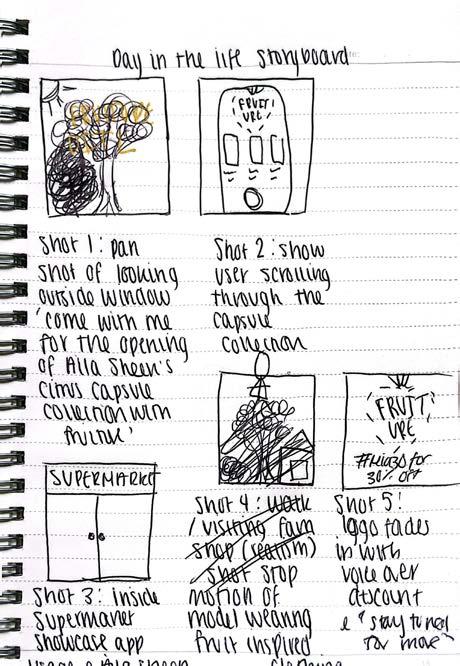 Day in the life storyboard
FRUIT
URE
Shot 1: pan
shot of looking
outside window
'come with me
for the opening
of Alla Sheen's
citrus capsule
collection with
fruiture'
Shot 2: show
user scrolling
through the
capsule
collection
SUPERMARKET
Shot 3: inside
supermarket
showcase app
Shot 4: walk
/ visiting farm
shop (realism)
shot stop
motion of
model wearing
fruit inspired
clothing
FRUIT
URE
30% off
Shot 5:
logo fades
in with
voice over
discount
& "stay tuned
for more"